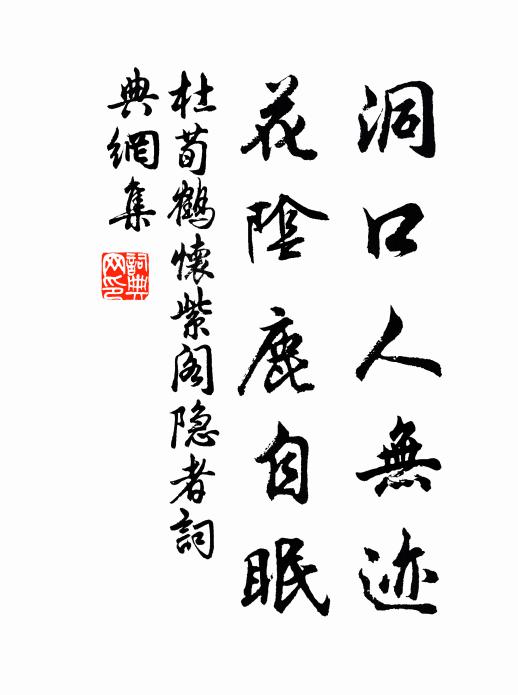 洞口人無迹
花陰鹿自眠
杜荀鶴懷紫阁隐者詞
典網集
詞典网印